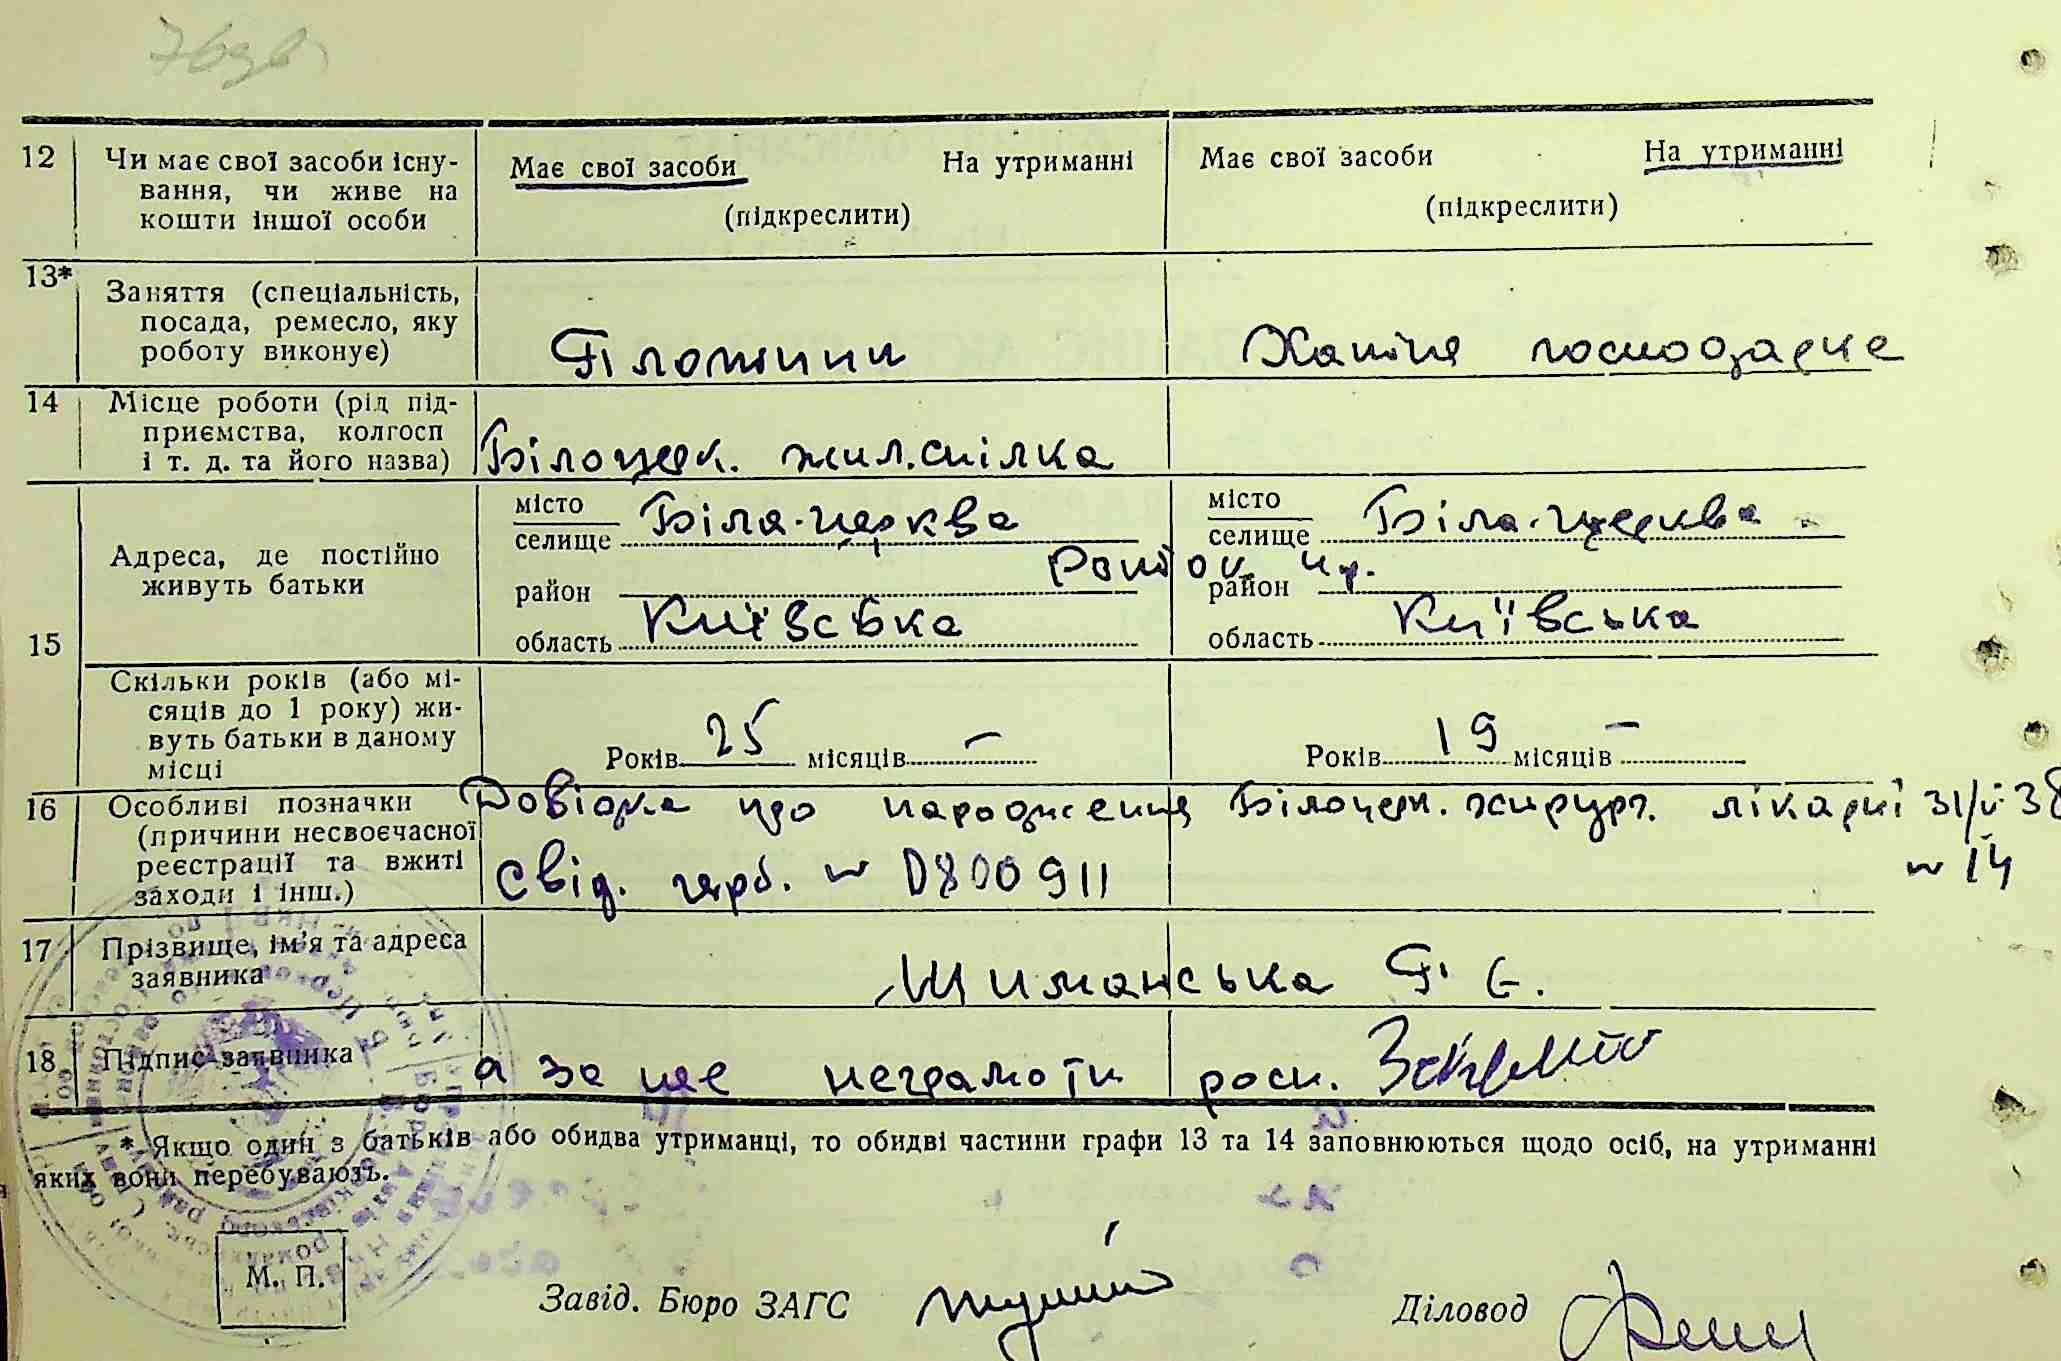 12 Чи має свої засоби існу- Має свої засоби На утриманні Має свої засоби На утриманні
вання, чи живе на
кошти іншої особи (підкреслити) (підкреслити)
13* Заняття (спеціальність,
посада, ремесло, яку
роботу виконує) Хатіня господарка
14 Місце роботи (рід під-
приємства, колгосп
і т. д. та його назва) Білоцерк. жил.спілка
15 Адреса, де постійно
живуть батьки
місто Біла-церква місто Біла-церква
селище селище
район район
область Київська область Київська
Скільки років (або мі-
сяців до 1 року) жи-
вуть батьки в даному
місці Років 25 місяців — Років 19 місяців —
16 Особливі позначки Довідка про народження Білоцерк. хирург. лікарні 31/V 38
(причини несвоєчасної
реєстрації та вжиті w 14
заходи і інш.) Свід. герб. w 0800911
17 Прізвище, ім'я та адреса
заявника Шиманська П. Є.
18 Підпис заявника а за неє неграмоти росп.
* Якщо один з батьків або обидва утриманці, то обидві частини графи 13 та 14 заповнюються щодо осіб, на утриманні
яких вони перебувають.
М. П.
Завід. Бюро ЗАГС Діловод